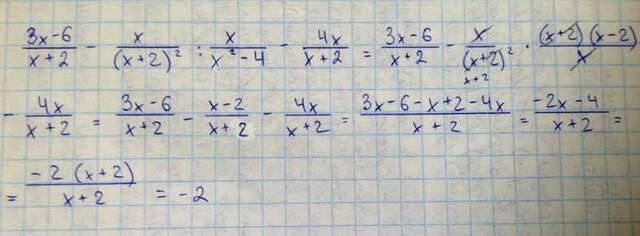 (3x-6)/(x+2) - x/(x+2)² : x/(x²-4) - 4x/(x+2) = (3x-6)/(x+2) - x/(x+2)² x+2 · (x+2)(x-2)/x
- 4x/(x+2) = (3x-6)/(x+2) - (x-2)/(x+2) - 4x/(x+2) = (3x-6-x+2-4x)/(x+2) = (-2x-4)/(x+2) =
= -2(x+2)/(x+2) = -2